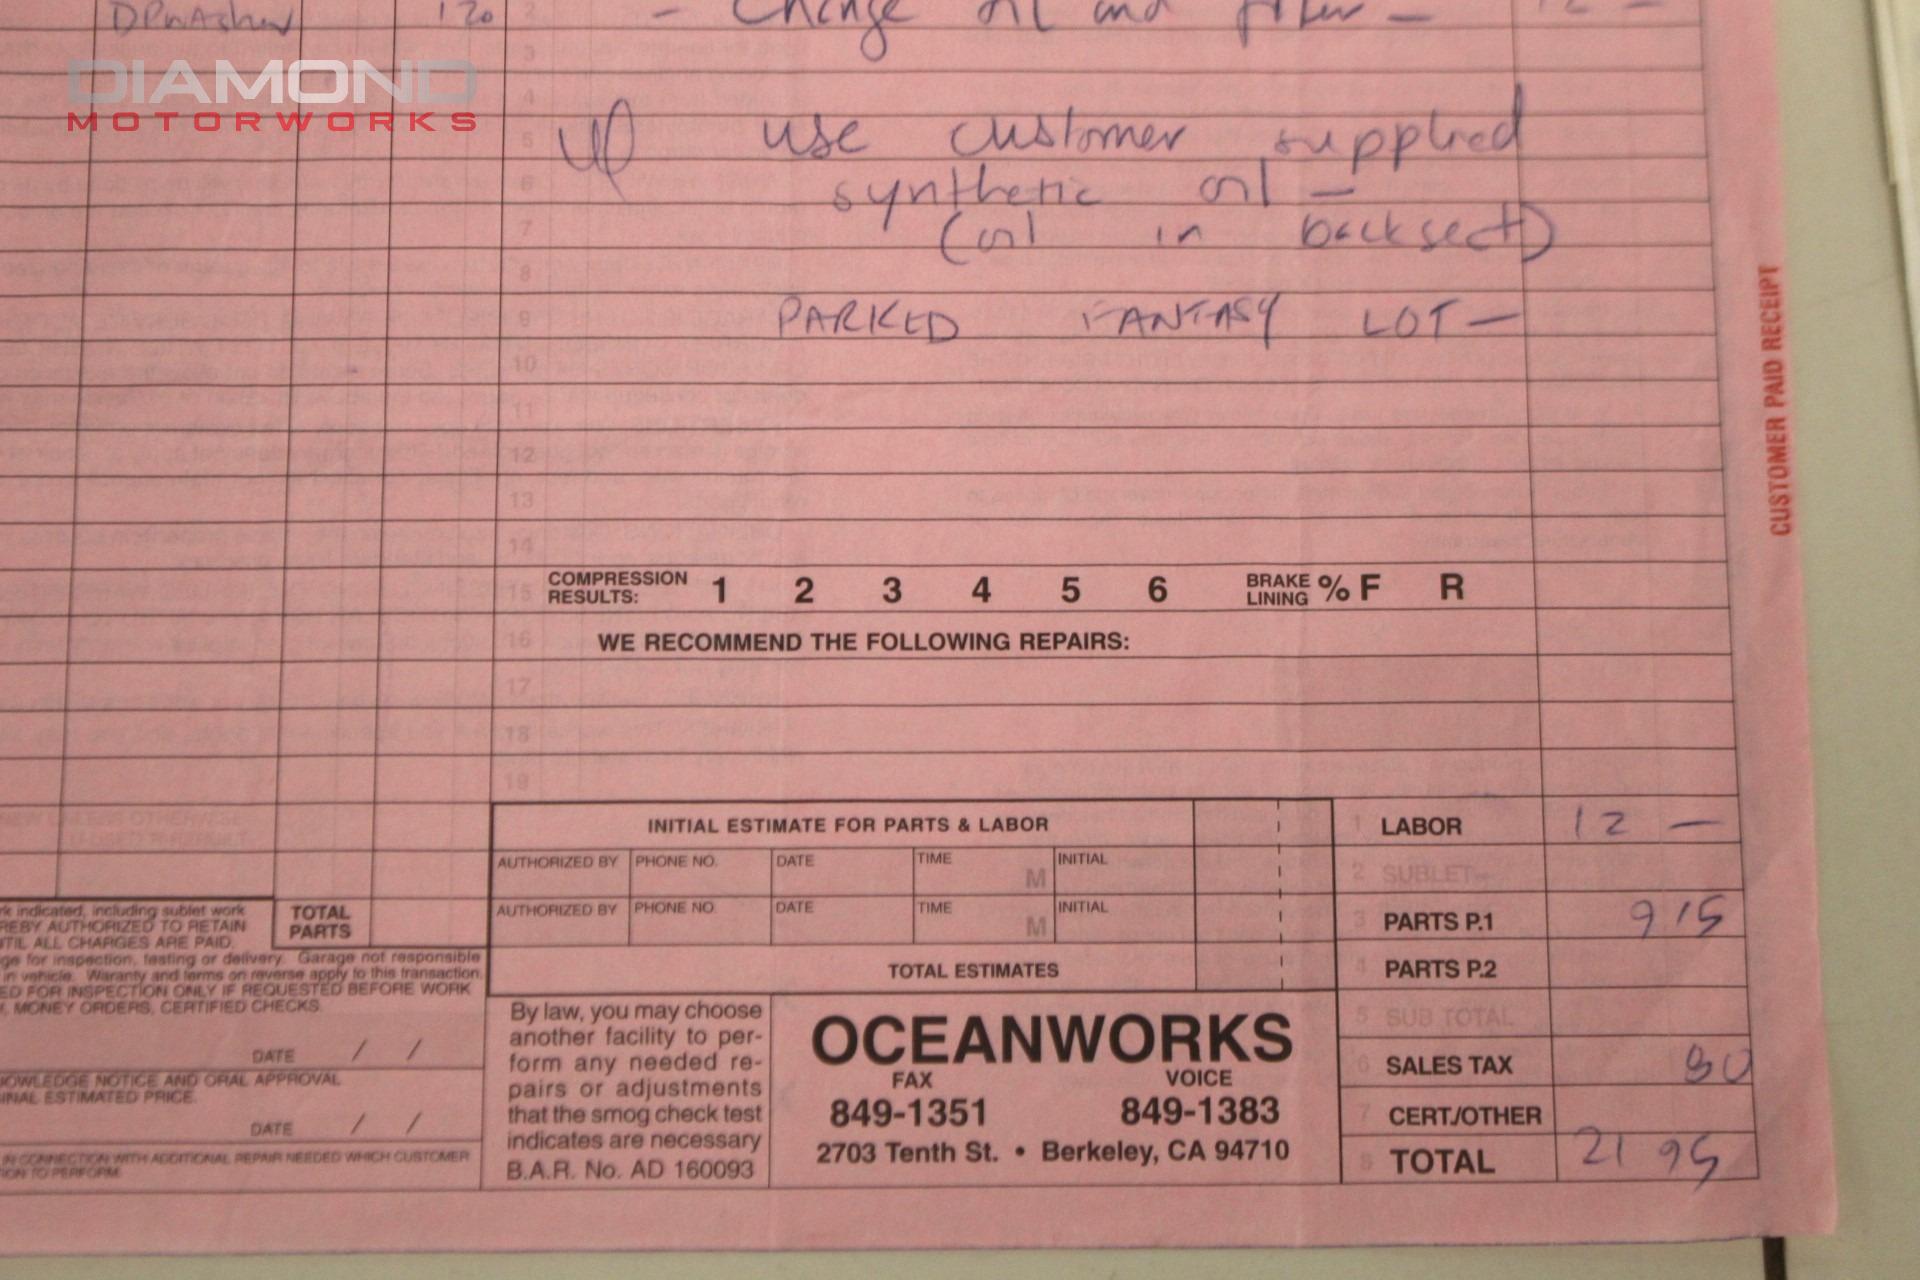 DPWasher 120 2 - Change oil and filter - 12 -
3
DIAMOND
MOTORWORKS
4
5 use customer supplied
6 synthetic oil -
7 (oil in backseat)
8
9 PARKED FANTASY LOT -
10
11
12
13
14
CUSTOMER PAID RECEIPT
15 COMPRESSION RESULTS: 1 2 3 4 5 6 BRAKE LINING % F R
16 WE RECOMMEND THE FOLLOWING REPAIRS:
17
18
19
INITIAL ESTIMATE FOR PARTS & LABOR
AUTHORIZED BY PHONE NO. DATE TIME M INITIAL
AUTHORIZED BY PHONE NO. DATE TIME M INITIAL
TOTAL ESTIMATES
1 LABOR 12 -
2 SUBLET
3 PARTS P.1 9 15
4 PARTS P.2
5 SUB TOTAL
6 SALES TAX 80
7 CERT./OTHER
8 TOTAL 21 95
rk indicated, including sublet work
REBY AUTHORIZED TO RETAIN
TIL ALL CHARGES ARE PAID.
TOTAL
PARTS
ge for inspection, testing or delivery. Garage not responsible
in vehicle. Warranty and terms on reverse apply to this transaction.
ED FOR INSPECTION ONLY IF REQUESTED BEFORE WORK
MONEY ORDERS, CERTIFIED CHECKS.
DATE / /
OWLEDGE NOTICE AND ORAL APPROVAL
INAL ESTIMATED PRICE.
DATE / /
IN CONNECTION WITH ADDITIONAL REPAIR NEEDED WHICH CUSTOMER
ION TO PERFORM
By law, you may choose
another facility to per-
form any needed re-
pairs or adjustments
that the smog check test
indicates are necessary
B.A.R. No. AD 160093
OCEANWORKS
FAX VOICE
849-1351 849-1383
2703 Tenth St. • Berkeley, CA 94710